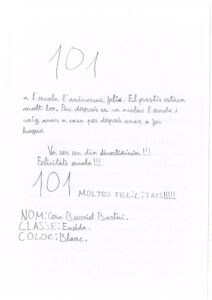 101
a l'escola l'aniversari feliç. El pastís estava
molt bo. Poc després es va acabar l'escola i
vaig anar a casa per després anar a fer
hoquei
Va ser un dia divertidíssim!!!
Felicitats escola!!!
101 MOLTES FELICITATS!!!!!
NOM: Burriel
CLASSE:
COLOR: Blanc.